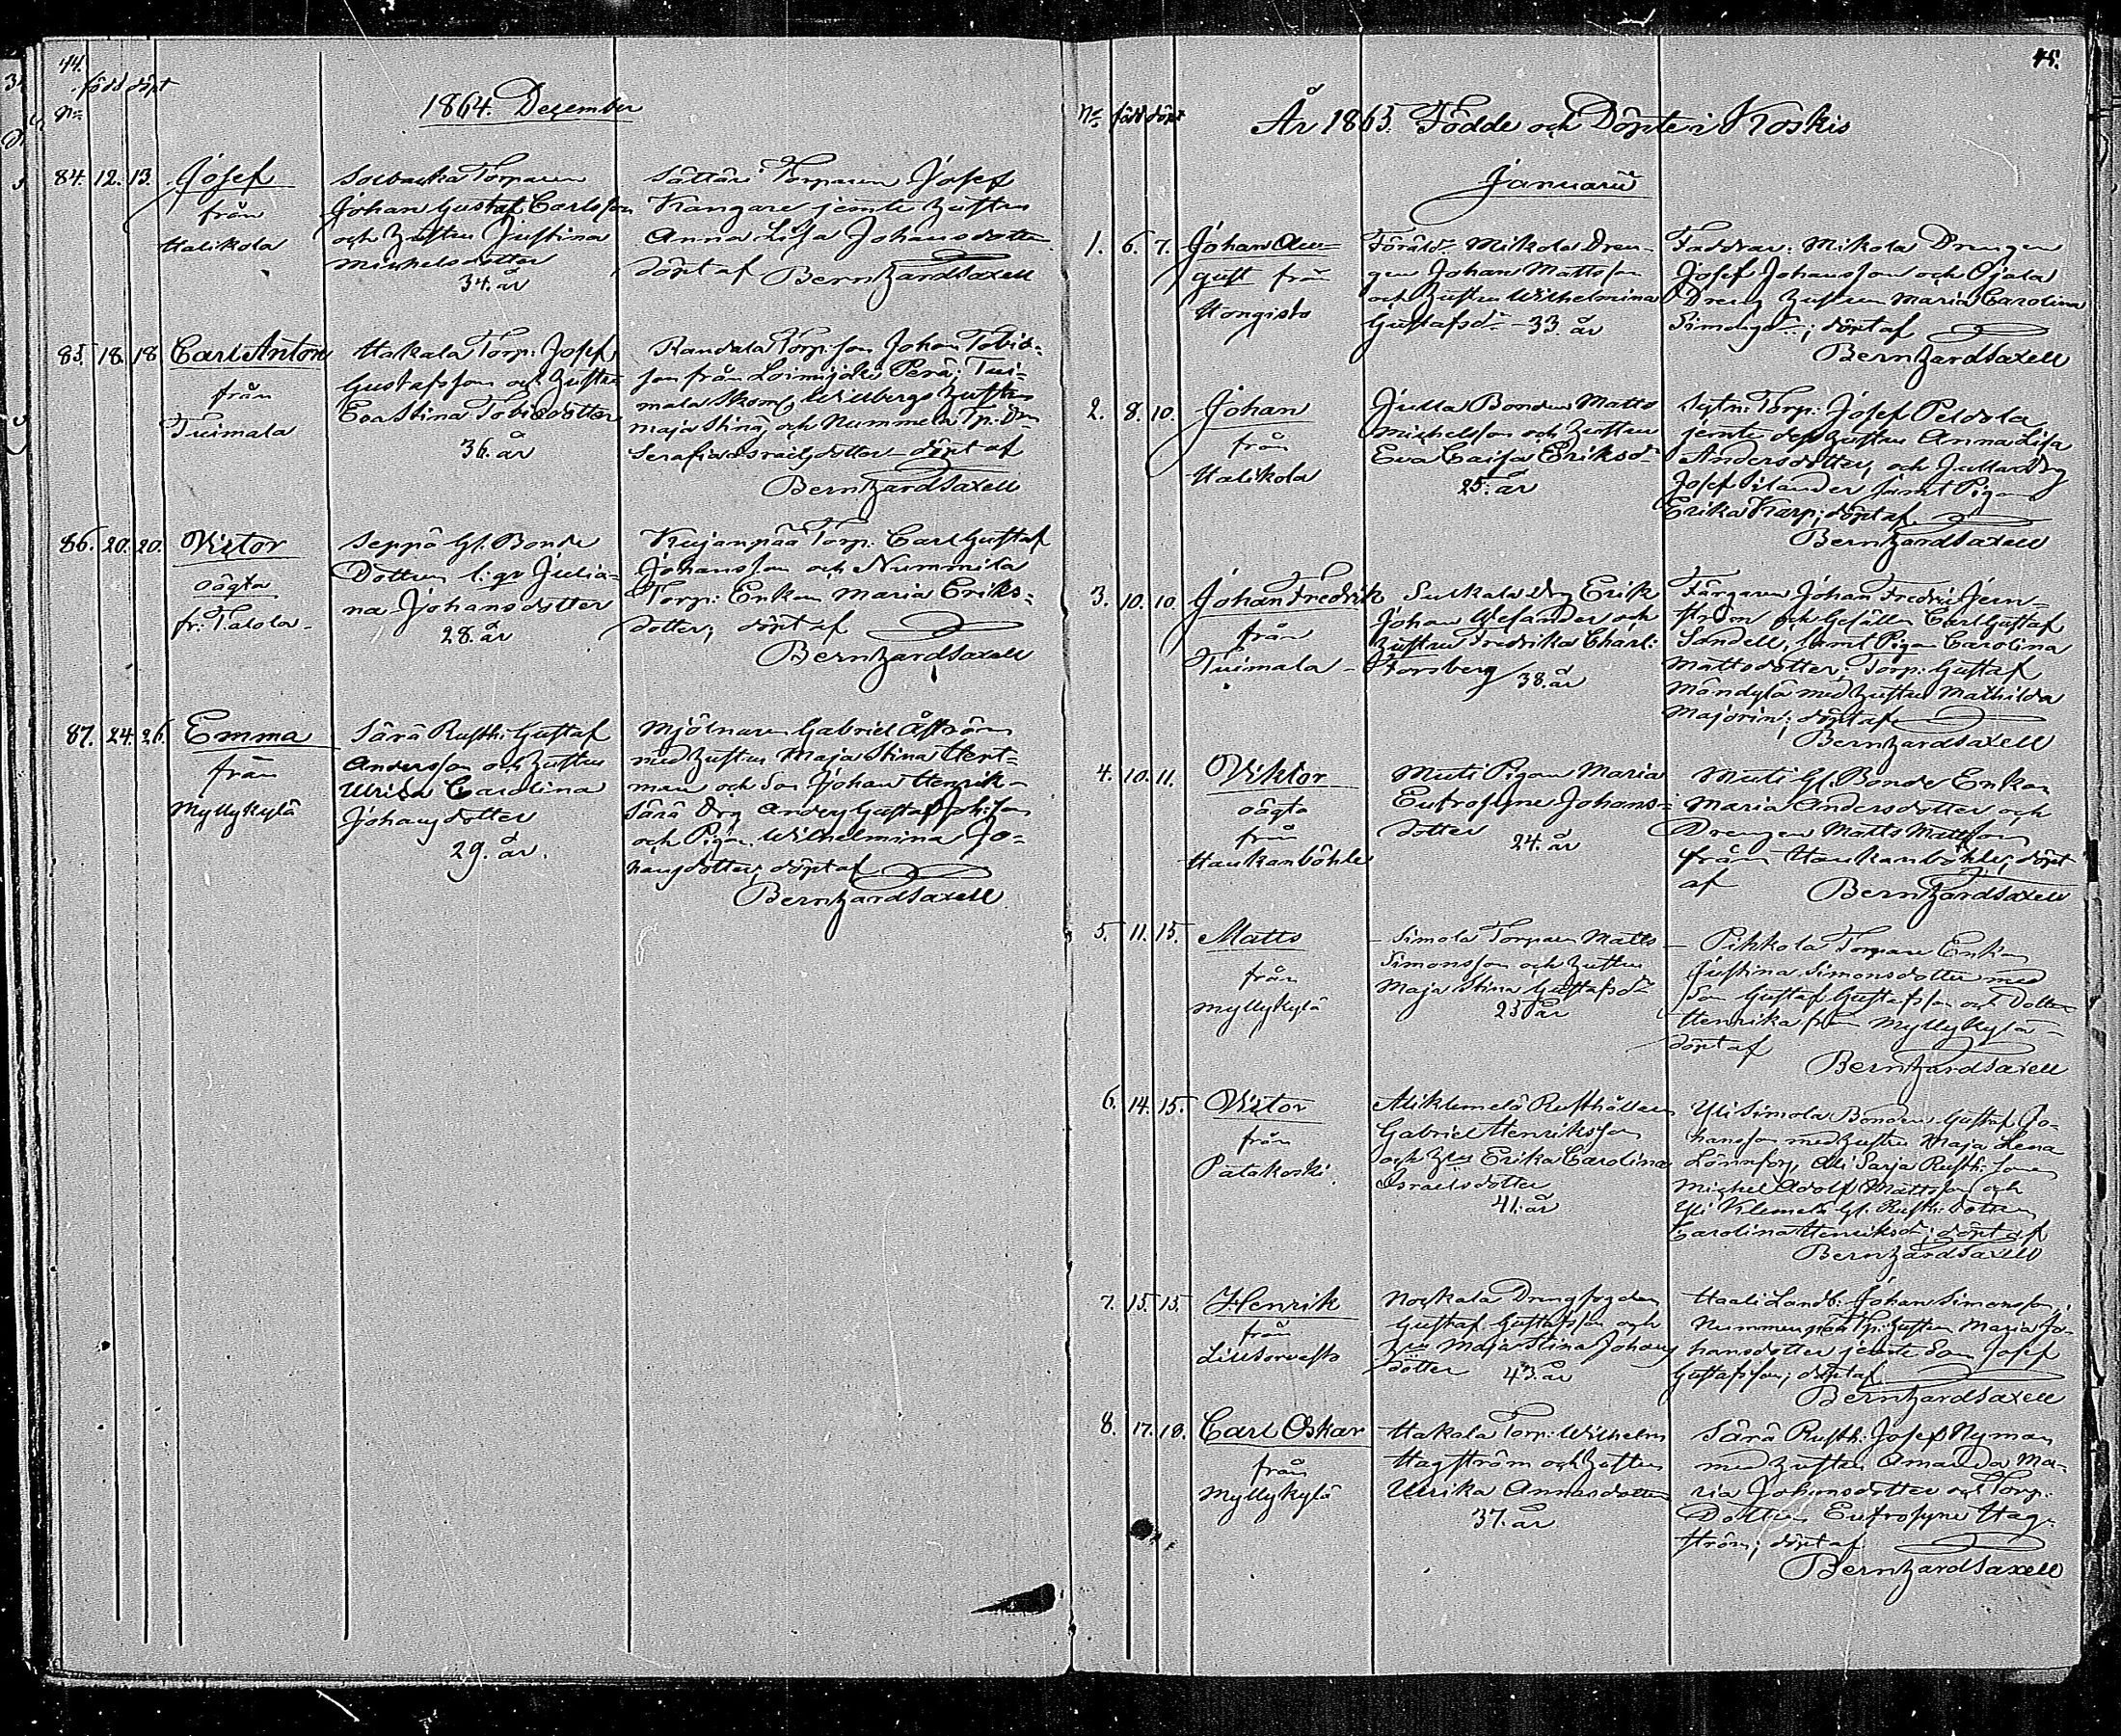 44.
född döpt
No
1864. Dezember
84. 12. 13. Josef
från
Halikola
Torparen
Johan Gustaf Carlsson
och hustru Justina
Michelsdotter
34. år
Sättäri Torparen Josef
Kangare jemte hustru
Anna Lisa Johansdotter
döpt af Bernhard Saxell
85. 18. 18 Carl Anton
från
Tuimala
Hakala Torp. Josef
Gustafsson och hustru
Eva Stina Tobiedotter
36. år
Randala Torp. son Johan Tobis-
son från Loimijoki Perä; Tui-
mala Skom. Willbergs hustru
Maja Stina och Nummela Tp. Dr
Serafia Israelsdotter - döpt af
Bernhard Saxell
86. 20. 20. Victor
oägta
fr. Talola
Seppä Gl. Bonde
Dottren l: qv Julia-
na Johansdotter
28. år
Kujanpää Torp. Carl Gustaf
Johansson och Nummila
Torp: Enkan Maria Eriks-
dotter; döpt af
Bernhard Saxell
87. 24. 26. Emma
från
Myllykylä
Särä Rusth: Gustaf
Andersson och hustru
Ulrika Carolina
Johansdotter
29. år.
Mjölnaren Gabriel Åström
med hustru Maja Stina Hert-
man och Son Johan Henrik
Särä Drg Anders Gustaf Johsson
och Pigan Wilhelmina Jo-
hansdotter; döpt af
Bernhard Saxell
45.
No född döpt
År 1865. Födde och Döpte i Koskis
Januarii
1. 6. 7. Johan Au-
gust från
Hongisto
Föräldr Mikola Dren-
gen Johan Mattsson
och hustru Wilhelmina
Gustafsdr 33 år
Faddrar: Mikola Drengen
Josef Johansson och Ojala
Dreng hustrun Maria Carolina
; döpt af
Bernhard Saxell
2. 8. 10. Johan
från
Halikola
Julla Bonden Matts
Michelsson och hustru
Eva Caisa Eriksdr
25. år
Sytn: Torp: Josef Peldola
jemte dess hustru Anna Lisa
Andersdotter, och Julla Drg
Josef Silander samt Pigan
Erika Karp; döpt af
Bernhard Saxell
3. 10. 10 Johan Fredrik
från
Tuimala
Suskala Drg Erik
Johan Wesander och
hustru Fredrika Charl:
Forsberg 38. år
Färgaren Johan Fredric Jern-
ström och Gesällen Carl Gustaf
Sandell, samt Pigan Carolina
Mattsdotter; Torp: Gustaf
Mändylä med hustru Mathilda
Majorin; döpt af
Bernhard Saxell
4. 10. 11. Viktor
oägta
från
Haukanböhle
Muti Pigan Maria
Eufrosyne Johans-
dotter
24. år
Muti Gl. Bonde Enkan
Maria Andersdotter och
Drengen Matts Mattsson
från Haukanböhle; döpt
af Bernhard Saxell
5. 11. 15. Matts
från
Myllykylä
Simola Torparen Matts
Simonsson och hustru
Maja Stina Gustafsdr
25 år
Pihkola Torpare Enkan
Justina Simonsdotter med
Son Gustaf Gustafsson och Dotter
Henrika från Myllykylä
döpt af
Bernhard Saxell
6. 14. 15. Victor
från
Patakoski
Aliklemelä Rusthållaren
Gabriel Henriksson
och hru Erika Carolina
Israelsdotter
41. år
Yli Simola Bonden Gustaf Jo-
hansson med hustru Maja Lena
Lönnfors, Ali Sarja Rusth: sonen
Michel Adolf Mattsson och
Yli Klemelä Gl. Rusth: dottren
Carolina Henriksdr; döpt af
Bernhard Saxell
7. 15. 15. Henrik
från
Lillsorvasto
Nockala Drengfogden
Gustaf Gustafsson och
hru Maja Stina Johans
dotter 43. år
Haali Landb: Johan Simonsson,
Nummenpää Tp. hustru Maria Jo-
hansdotter jemte Son Josef
Gustafsson; döpt af
Bernhard Saxell
8. 17. 18. Carl Oskar
från
Myllykylä
Hakala Torp: Wilhelm
Hagström och hustru
Ulrika Annasdotter
37. år
Särä Rusth: Josef Nyman
med hustru Amanda Ma-
ria Johansdotter och Torp.
Dottren Eufrosyne Hag-
ström; döpt af
Bernhard Saxell